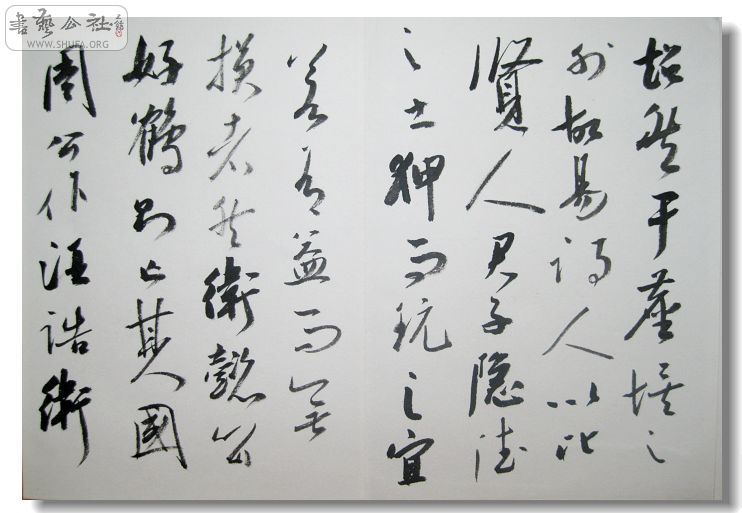 書藝公社
WWW.SHUFA.ORG
超然于塵埃之
外故易詩人以比
賢人君子隱德
之士狎而玩之宜
若有益而無
損者然衛懿公
好鶴則亡其國
周公作酒誥衛